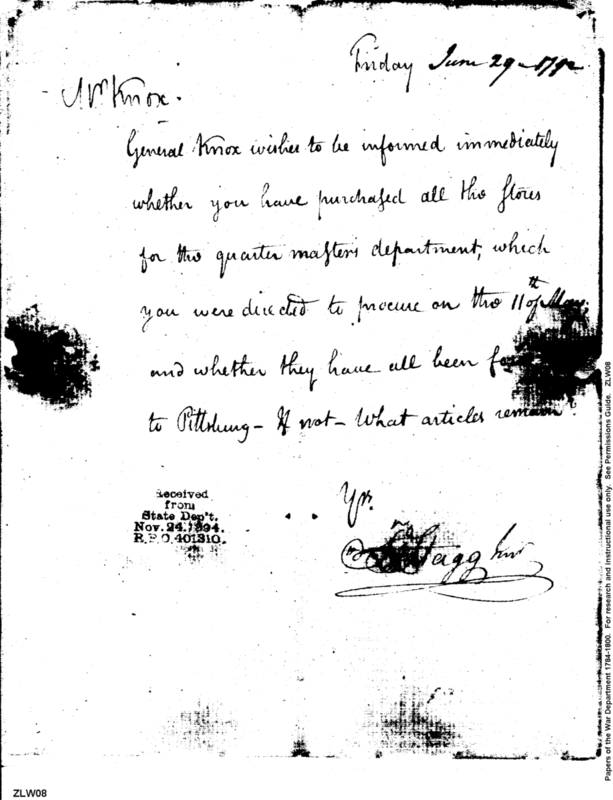 Friday June 29 1792
Mr Knox.
General Knox wishes to be informed immediately
whether you have purchased all the stores
for the quarter masters department, which
you were directed to procure on the 11th of May;
and whether they have all been
to Pittsburg - If not - What articles remain?
Yr.
Stagg Junr
Received
from
State Dep't.
Nov. 24, 1894.
R. P. O. 401310.
Papers of the War Department 1784-1800. For research and instructional use only. See Permissions Guide. ZLW08
ZLW08